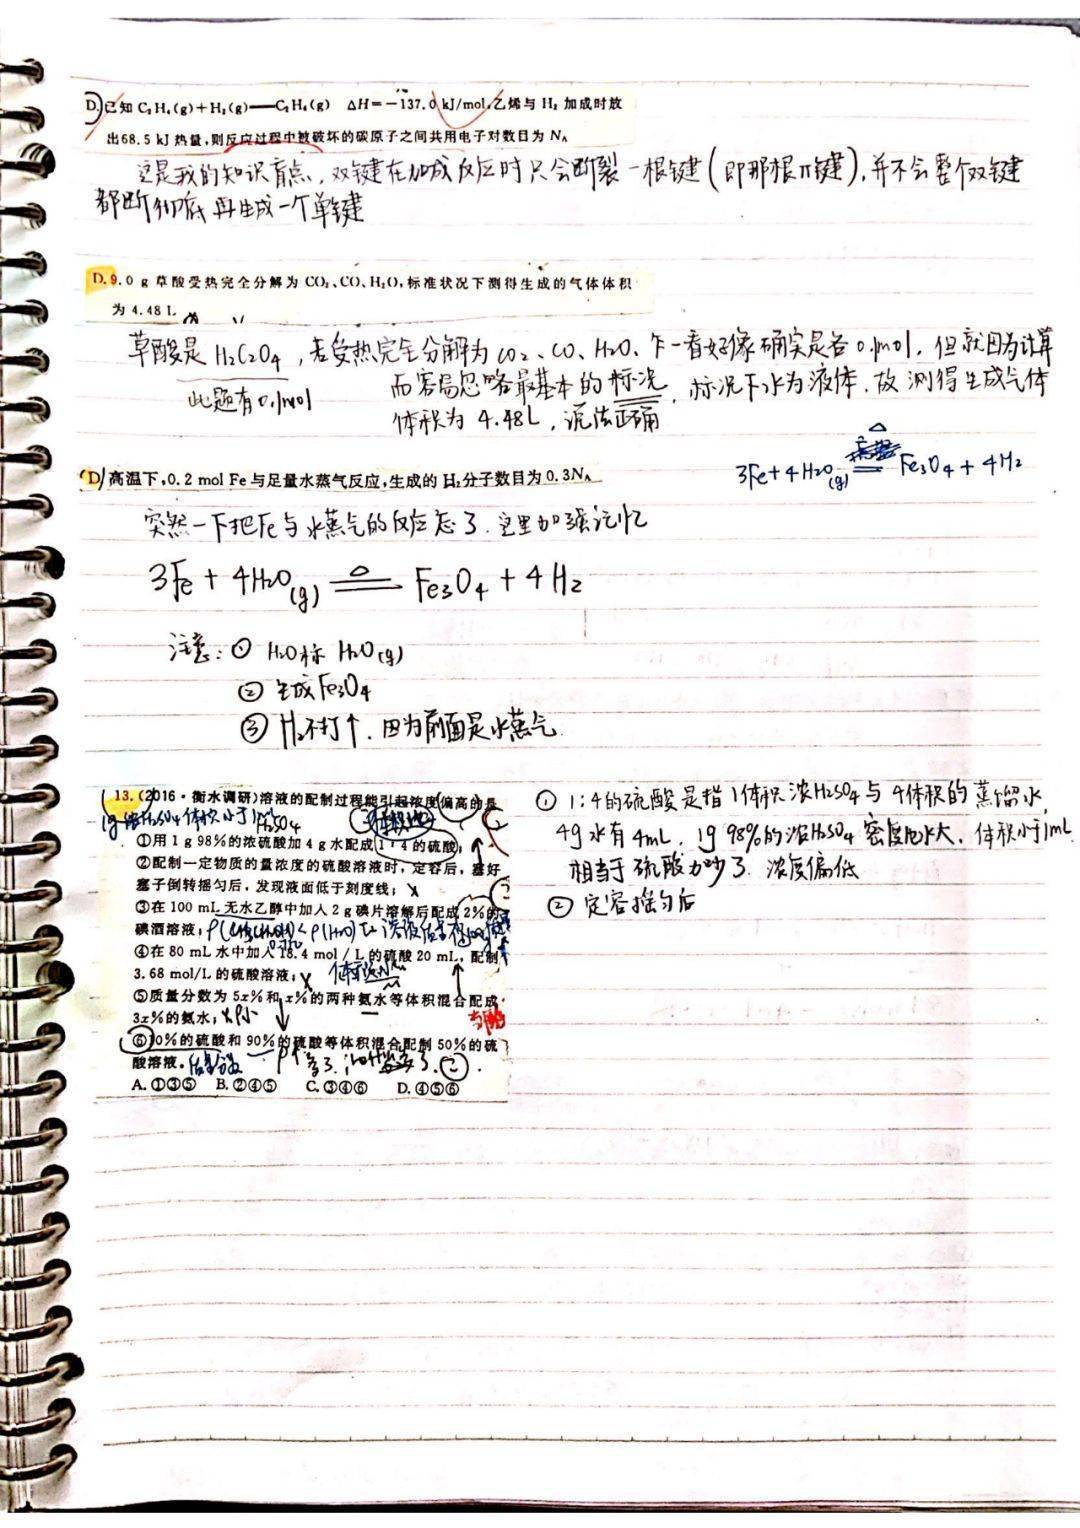 D.已知 C₂H₄(g)+H₂(g)══C₂H₆(g) ΔH=-137.0 kJ/mol,乙烯与 H₂ 加成时放
出68.5 kJ 热量,则反应过程中被破坏的碳原子之间共用电子对数目为 Nₐ
这是我的知识盲点,双键在加成反应时只会断裂一根键(即那根π键),并不会整个双键
都断彻底再生成一个单键
D.9.0 g 草酸受热完全分解为 CO₂、CO、H₂O,标准状况下测得生成的气体体积
为 4.48 L
草酸是 H₂C₂O₄,若受热完全分解为 CO₂、CO、H₂O、乍一看好像确实是各 0.1mol,但就因为计算
此题有0.1mol
而容易忽略最基本的标况,标况下水为液体,故测得生成气体
体积为 4.48L,说法正确
3Fe+4H₂O(g) ══ Fe₃O₄+4H₂
△
D 高温下,0.2 mol Fe 与足量水蒸气反应,生成的 H₂分子数目为 0.3Nₐ
突然一下把Fe与水蒸气的反应忘了.这里加强记忆
3Fe + 4H₂O(g) ══△══ Fe₃O₄ + 4H₂
注意:① H₂O标 H₂O(g)
② 生成Fe₃O₄
③ H₂不打↑,因为前面是水蒸气.
13.(2016·衡水调研)溶液的配制过程能引起浓度偏高的是
1g浓H₂SO₄体积小于1mL
H₂SO₄
体积比
①用 1 g 98%的浓硫酸加 4 g 水配成 1∶4 的硫酸;
②配制一定物质的量浓度的硫酸溶液时,定容后,塞好
塞子倒转摇匀后,发现液面低于刻度线; ×
③在 100 mL 无水乙醇中加入 2 g 碘片溶解后配成 2%的
碘酒溶液;ρ(CH₃CH₂OH)<ρ(H₂O)
④在 80 mL 水中加入 18.4 mol/L 的硫酸 20 mL,配制
3.68 mol/L 的硫酸溶液;
⑤质量分数为 5x%和 x%的两种氨水等体积混合配成
3x%的氨水; 偏小
⑥10%的硫酸和 90%的硫酸等体积混合配制 50%的硫
酸溶液。
A.①③⑤ B.②④⑤ C.③④⑥ D.④⑤⑥
① 1:4的硫酸是指 1体积浓H₂SO₄与 4体积的蒸馏水
4g水有4mL,1g 98%的浓H₂SO₄密度比水大,体积小于1mL
相当于硫酸加少了,浓度偏低
② 定容摇匀后